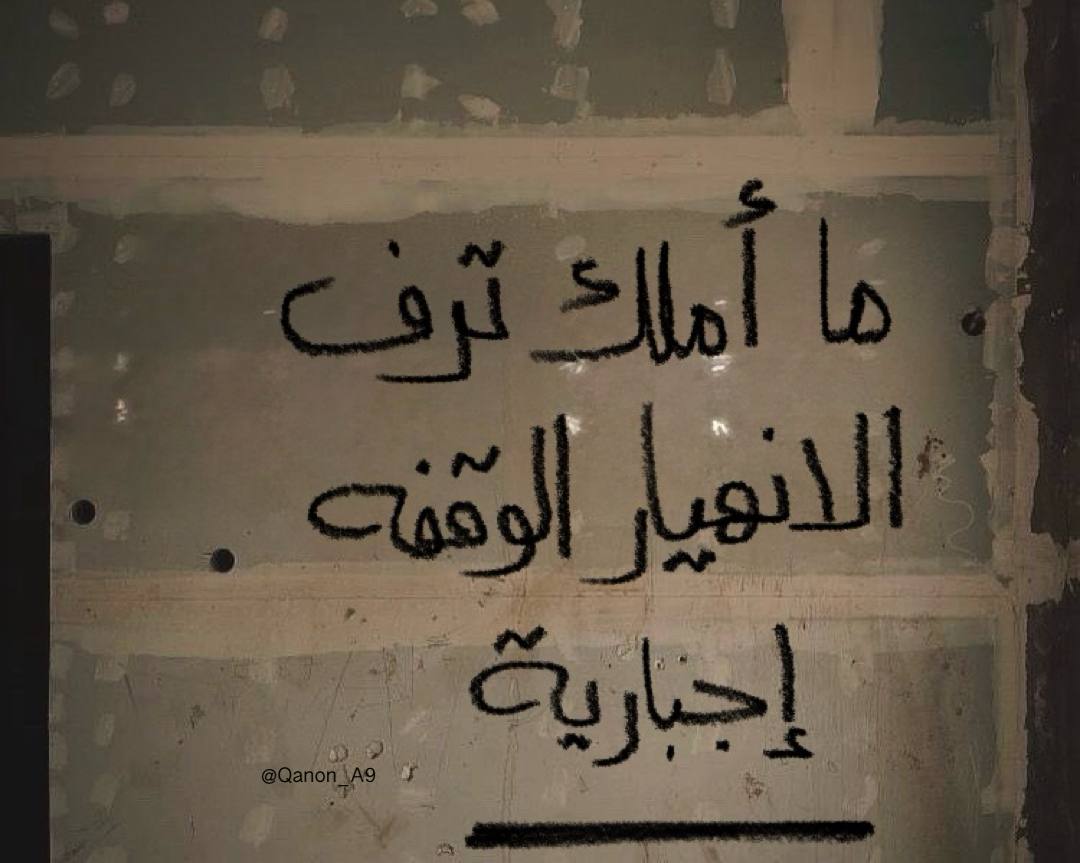 ما أملك ترف
الانهيار الوقفه
إجبارية
@Qanon_A9